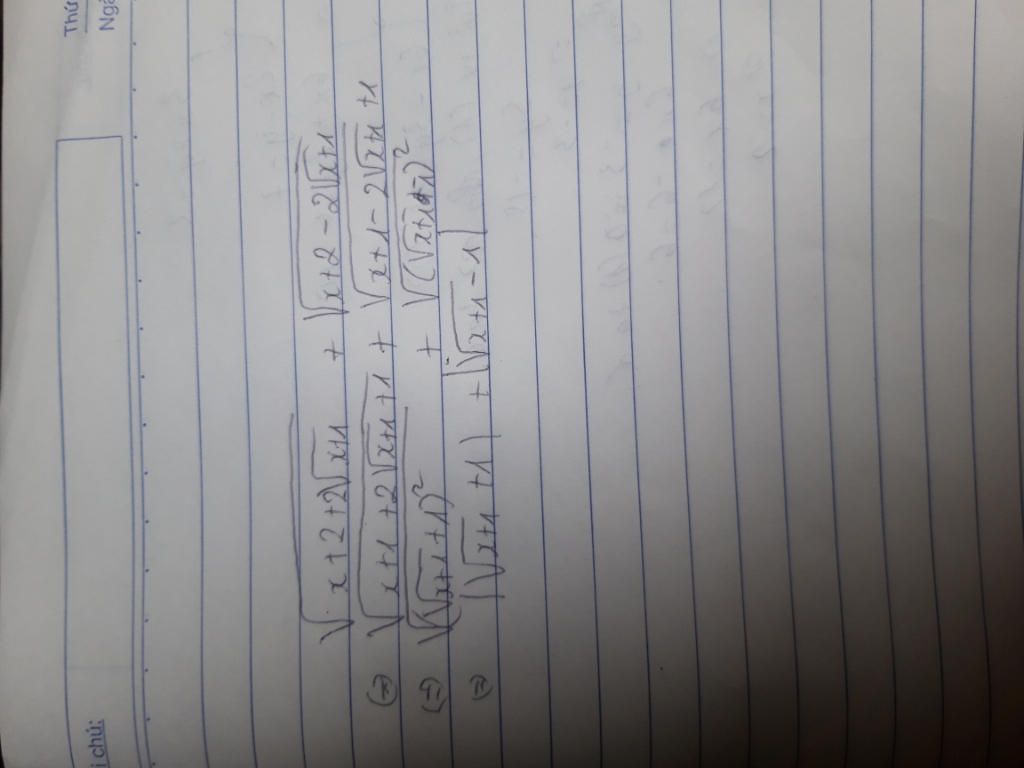 Thứ
Ngà
i chú:
√(x+2+2√(x+1)) + √(x+2-2√(x+1))
(=) √(x+1+2√(x+1)+1) + √(x+1-2√(x+1)+1)
(=) √((√(x+1)+1)²) +
(=) |√(x+1)+1| + |√(x+1)-1|